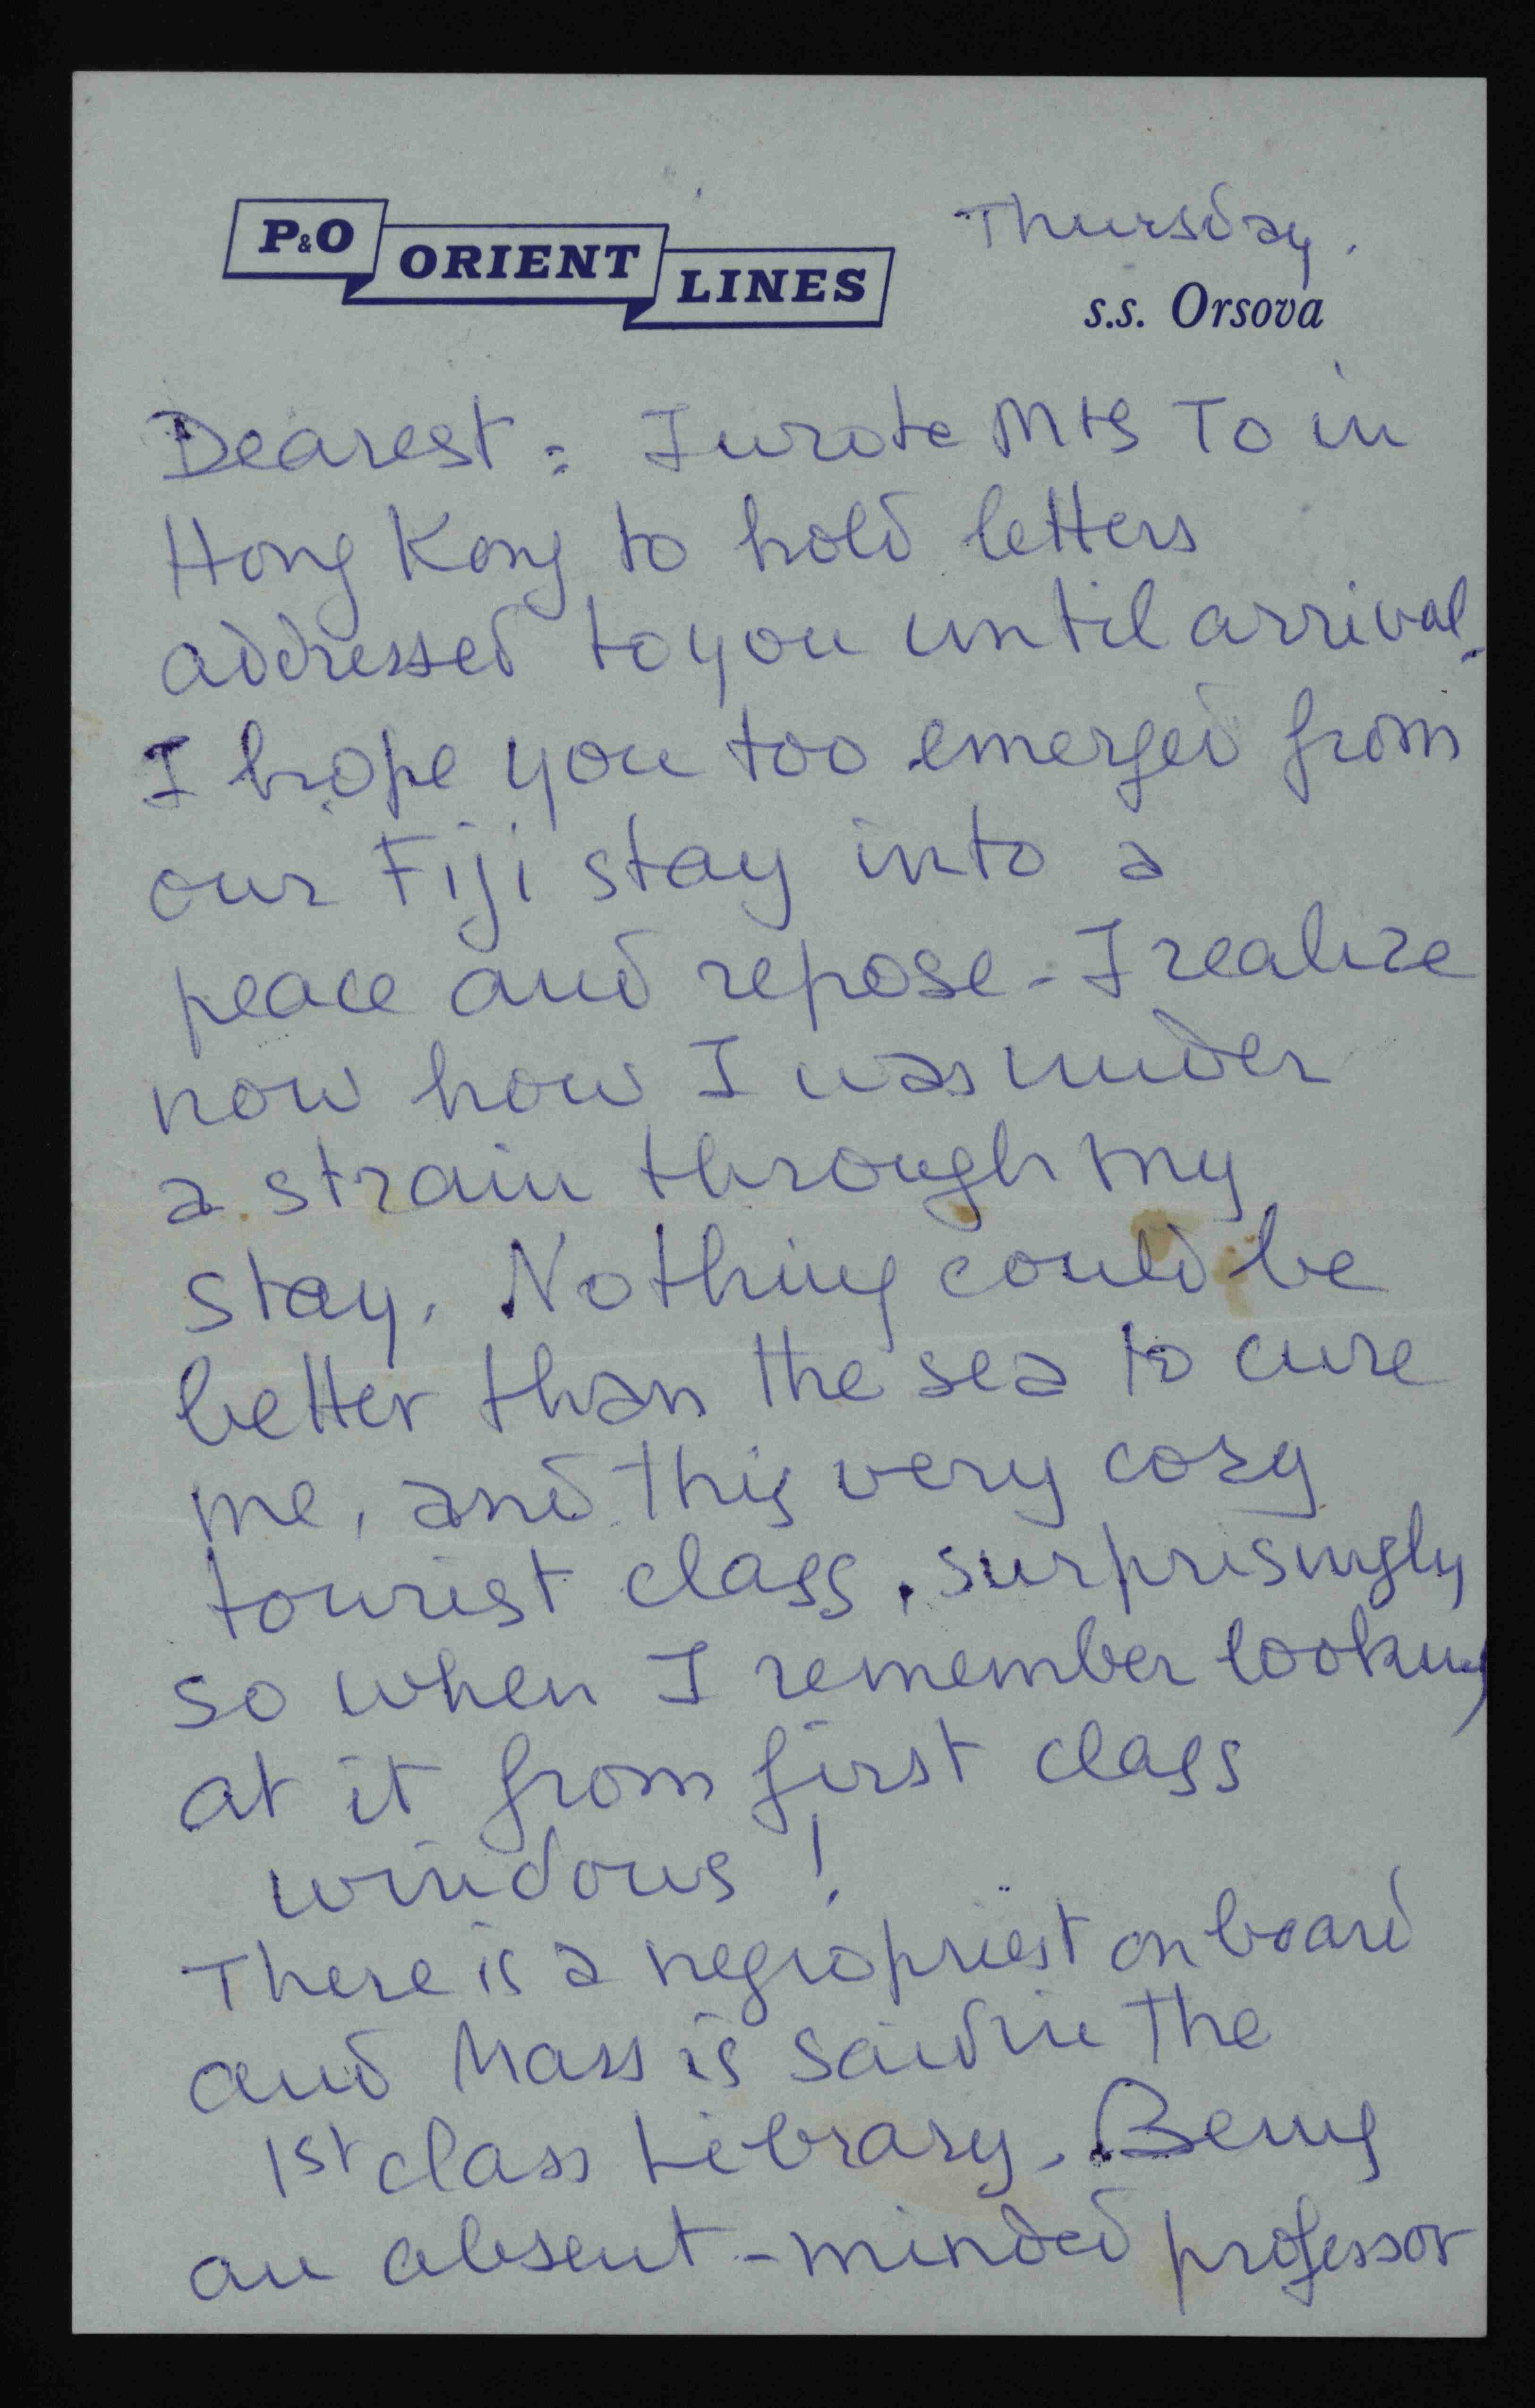 P&O ORIENT LINES
Thursday.
s.s. Orsova
Dearest: I wrote Mrs To in
Hong Kong to hold letters
addressed to you until arrival.
I hope you too emerged from
our Fiji stay into a
peace and repose - I realize
now how I was under
a strain through my
stay. Nothing could be
better than the sea to cure
me, and this very cosy
tourist class, surprisingly
so when I remember looking
at it from first class
windows!
There is a negro priest on board
and Mass is said in the
1st class Library. Being
an absent-minded professor